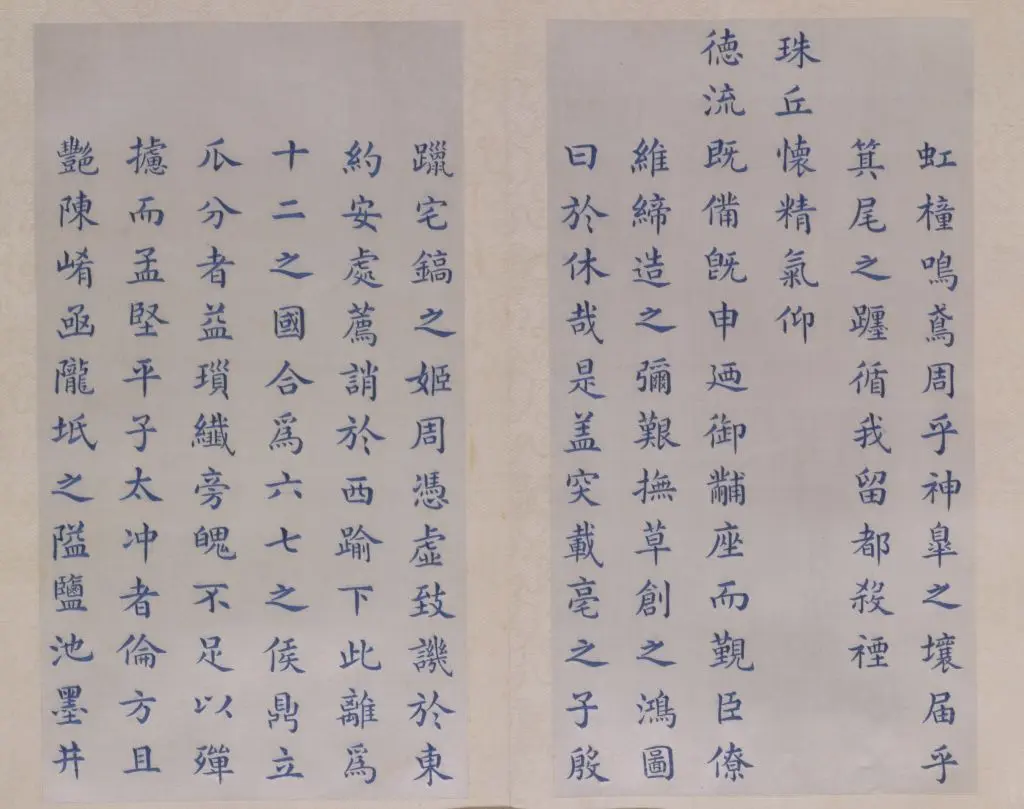 虹橦鳴鳶周乎神臯之壤届乎
箕尾之躔循我留都殺禋
珠丘懐精氣仰
德流既備旣申廼御黼座而覲臣僚
維締造之彌艱撫草創之鴻圖
曰於休哉是盖突載亳之子殷
躐宅鎬之姬周憑虛致譏於東
約安處薦誚於西踰下此離爲
十二之國合爲六七之侯鼎立
瓜分者益瑣纎旁魄不足以殫
攄而孟堅平子太冲者倫方且
豔陳崤函隴坻之隘鹽池墨井